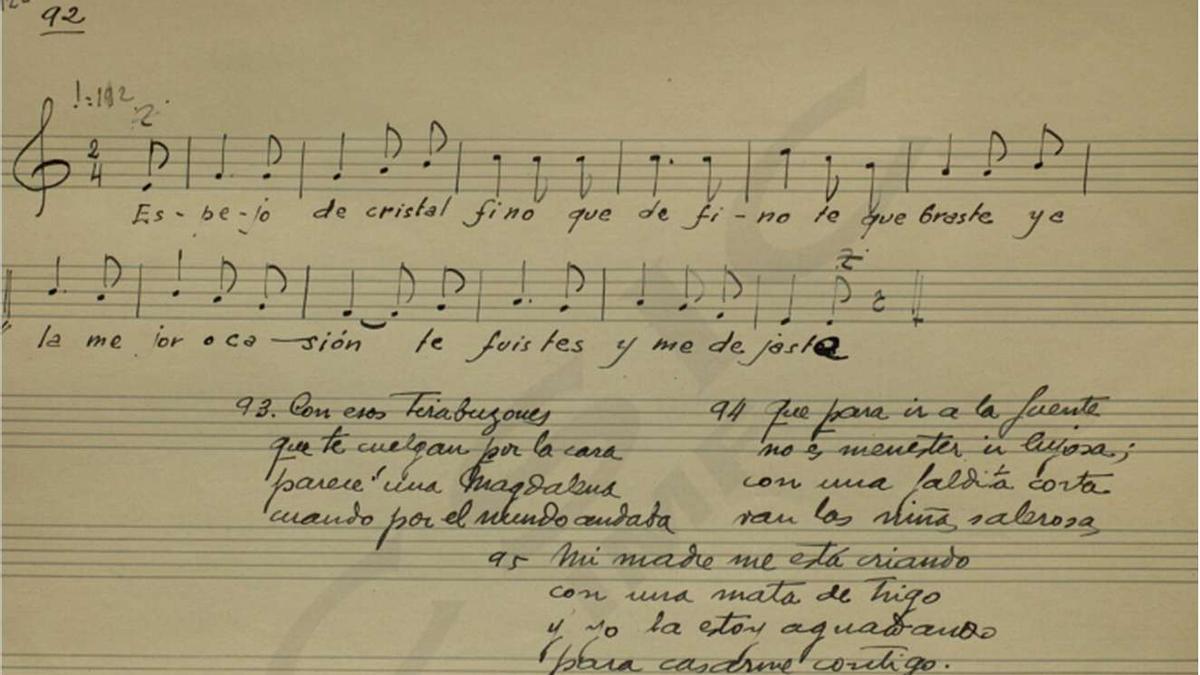 92
2
4
Es-be-jo de cristal fino que de fi-no te que braste ye
la me jor oca-sión te fuistes y me de jaste
93. Con esos Tirabuzones
que te cuelgan por la cara
parece una Magdalena
cuando por el mundo andaba
94 que para ir a la fuente
no es menester ir lujosa;
con una faldita corta
van las niñas salerosa
95 Mi madre me está criando
con una mata de trigo
y yo la estoy aguardando
para casarme contigo.